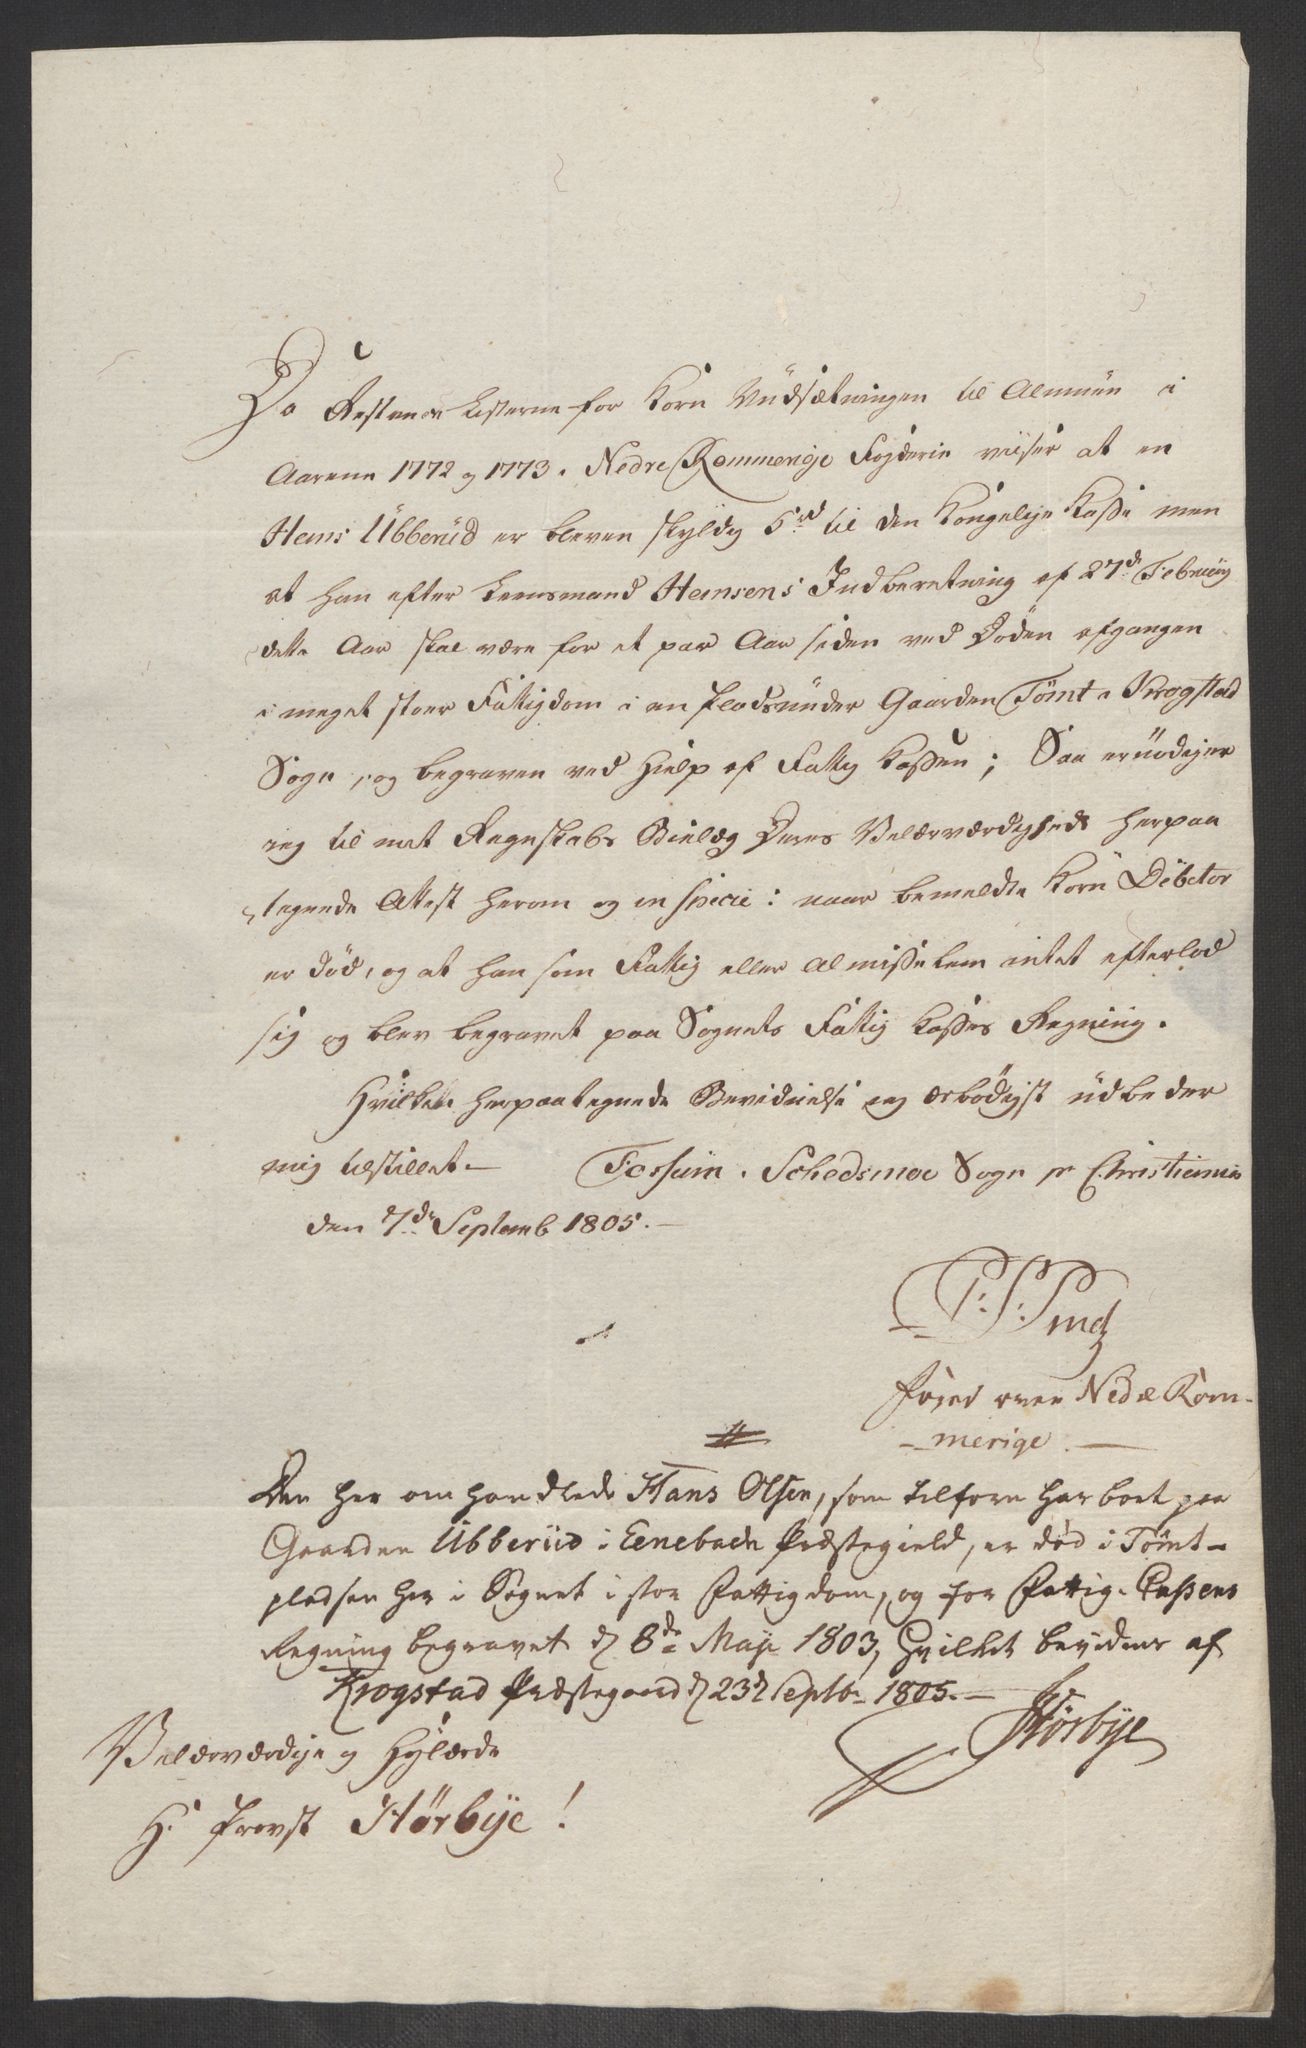 Da Restance Listerne for Korn Uudsætningen til Almuen i
Aarene 1772 og 1773. Nedre Rommerige Fogderie viiser at en
Hans Ubberud er bleven skyldig 5 rd til den Kongelige Kasse men
at han efter Leensmand Hansens Indberetning af 27de Februarij
dette Aar skal være for et par Aar siden ved Døden afgangen
i meget stoer Fattigdom i en Plads under Gaarden Tømt i Krogstad
Sogn, og begraven ved Hielp af Fattig Kassen; Saa er nødiger
ieg til mit Regnskabs Bielæg Deres Velærværdigheds herpaa
tegnede Attest herom og in specie: naar bemeldte Korn Debitor
er død, og at han som Fattig eller Almisselem intet efterlod
sig og blev begravet paa Sognets Fattig Kasses Regning.
Hvilken herpaategnede Bevidnelse ieg ærbødigst udbeder
mig tilstillet. Fossum i Schedsmoe Sogn pr Christiania
den 7de Septemb 1805.
Foged over Nedre Rom-
merige.
Den her omhandlede Hans Olsen, som tilforn har boet paa
Gaarden Ubberud i Eenebach Præstegield, er død i Tømt-
pladsen her i Sognet i stor Fattigdom, og for Fattig-Cassens
Regning begravet d 8de Maji 1803, hvilket bevidnes af
Krogstad Præstegaard d 23d Septbr 1805.
Hørbye
Velærværdige og Høylærde
Hr Provst Hørbye!